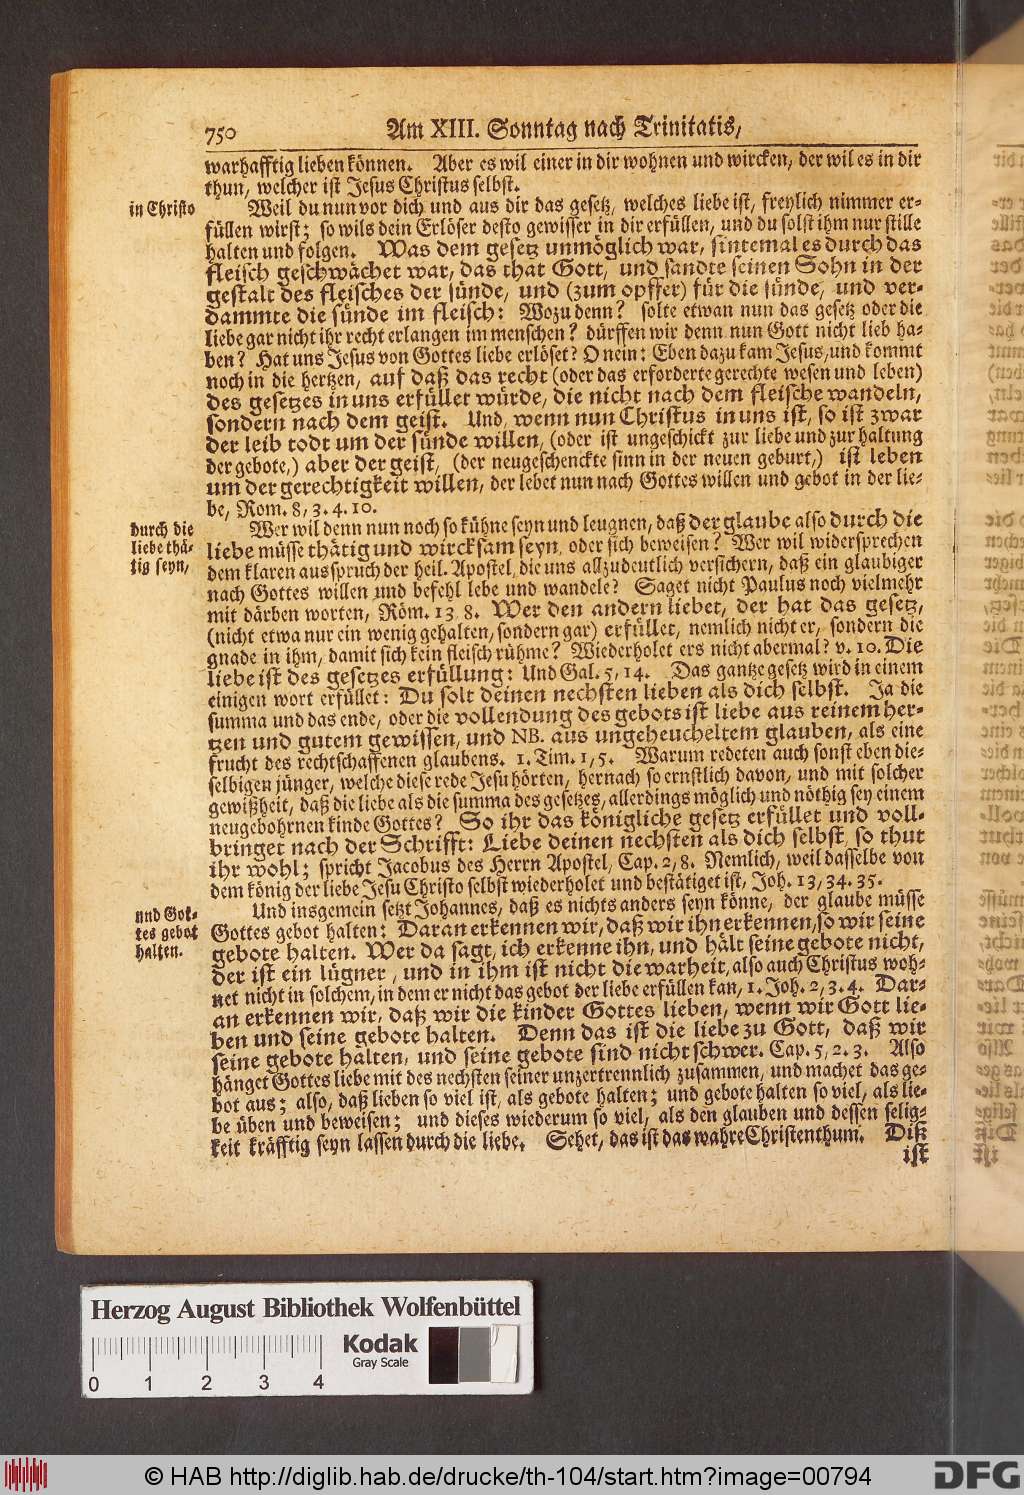 750 Am XIII. Sonntag nach Trinitatis,
warhafftig lieben können. Aber es wil einer in dir wohnen und wircken, der wil es in dir
thun, welcher ist Jesus Christus selbst.
in Christo
Weil du nun vor dich und aus dir das gesetz, welches liebe ist, freylich nimmer er-
füllen wirst; so wils dein Erlöser desto gewisser in dir erfüllen, und du solst ihm nur stille
halten und folgen. Was dem gesetz unmöglich war, sintemal es durch das
fleisch geschwächet war, das that Gott, und sandte seinen Sohn in der
gestalt des fleisches der sünde, und (zum opffer) für die sünde, und ver-
dammte die sünde im fleisch: Wozu denn? solte etwan nun das gesetz oder die
liebe gar nicht ihr recht erlangen im menschen? dürffen wir denn nun Gott nicht lieb ha-
ben? Hat uns Jesus von Gottes liebe erlöset? O nein: Eben dazu kam Jesus, und kommt
noch in die hertzen, auf daß das recht (oder das erforderte gerechte wesen und leben)
des gesetzes in uns erfüllet würde, die nicht nach dem fleische wandeln,
sondern nach dem geist. Und, wenn nun Christus in uns ist, so ist zwar
der leib todt um der sünde willen, (oder ist ungeschickt zur liebe und zur haltung
der gebote,) aber der geist, (der neugeschenckte sinn in der neuen geburt,) ist leben
um der gerechtigkeit willen, der lebet nun nach Gottes willen und gebot in der lie-
be, Rom. 8, 3. 4. 10.
durch die
liebe thä-
tig seyn,
Wer wil denn nun noch so kühne seyn und leugnen, daß der glaube also durch die
liebe müsse thätig und wircksam seyn, oder sich beweisen? Wer wil widersprechen
dem klaren ausspruch der heil. Apostel, die uns allzudeutlich versichern, daß ein glaubiger
nach Gottes willen und befehl lebe und wandele? Saget nicht Paulus noch vielmehr
mit därben worten, Röm. 13, 8. Wer den andern liebet, der hat das gesetz,
(nicht etwa nur ein wenig gehalten, sondern gar) erfüllet, nemlich nicht er, sondern die
gnade in ihm, damit sich kein fleisch rühme? Wiederholet ers nicht abermal? v. 10. Die
liebe ist des gesetzes erfüllung: Und Gal. 5, 14. Das gantze gesetz wird in einem
einigen wort erfüllet: Du solt deinen nechsten lieben als dich selbst. Ja die
summa und das ende, oder die vollendung des gebots ist liebe aus reinem her-
tzen und gutem gewissen, und NB. aus ungeheucheltem glauben, als eine
frucht des rechtschaffenen glaubens. 1. Tim. 1, 5. Warum redeten auch sonst eben die-
selbigen jünger, welche diese rede Jesu hörten, hernach so ernstlich davon, und mit solcher
gewißheit, daß die liebe als die summa des gesetzes, allerdings möglich und nöthig sey einem
neugebohrnen kinde Gottes? So ihr das königliche gesetz erfüllet und voll-
bringet nach der Schrifft: Liebe deinen nechsten als dich selbst, so thut
ihr wohl; spricht Jacobus des Herrn Apostel, Cap. 2, 8. Nemlich, weil dasselbe von
dem könig der liebe Jesu Christo selbst wiederholet und bestätiget ist, Joh. 13, 34. 35.
und Got-
tes gebot
halten.
Und insgemein setzt Johannes, daß es nichts anders seyn könne, der glaube müsse
Gottes gebot halten: Daran erkennen wir, daß wir ihn erkennen, so wir seine
gebote halten. Wer da sagt, ich erkenne ihn, und hält seine gebote nicht,
der ist ein lügner, und in ihm ist nicht die warheit, also auch Christus woh-
net nicht in solchem, in dem er nicht das gebot der liebe erfüllen kan, 1. Joh. 2, 3. 4. Dar-
an erkennen wir, daß wir die kinder Gottes lieben, wenn wir Gott lie-
ben und seine gebote halten. Denn das ist die liebe zu Gott, daß wir
seine gebote halten, und seine gebote sind nicht schwer. Cap. 5, 2. 3. Also
hänget Gottes liebe mit des nechsten seiner unzertrennlich zusammen, und machet das ge-
bot aus; also, daß lieben so viel ist, als gebote halten; und gebote halten so viel, als lie-
be üben und beweisen; und dieses wiederum so viel, als den glauben und dessen selig-
keit kräfftig seyn lassen durch die liebe. Sehet, das ist das wahre Christenthum. Diß
ist
Herzog August Bibliothek Wolfenbüttel
Kodak
Gray Scale
0 1 2 3 4
© HAB http://diglib.hab.de/drucke/th-104/start.htm?image=00794
DFG